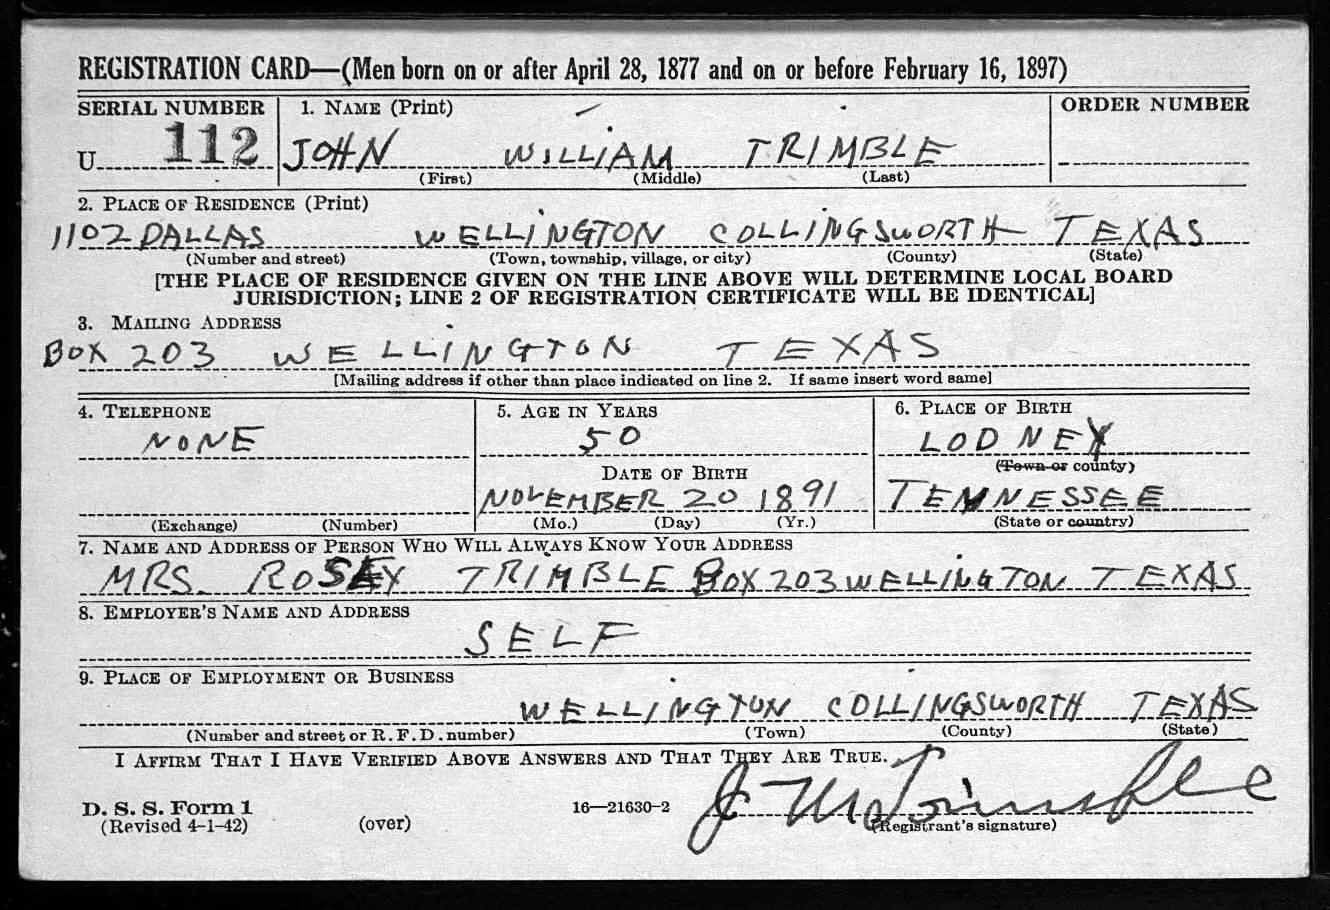 REGISTRATION CARD—(Men born on or after April 28, 1877 and on or before February 16, 1897)
SERIAL NUMBER 1. NAME (Print) ORDER NUMBER
U 112 JOHN WILLIAM TRIMBLE
(First) (Middle) (Last)
2. PLACE OF RESIDENCE (Print)
1102 DALLAS WELLINGTON COLLINGSWORTH TEXAS
(Number and street) (Town, township, village, or city) (County) (State)
[THE PLACE OF RESIDENCE GIVEN ON THE LINE ABOVE WILL DETERMINE LOCAL BOARD
JURISDICTION; LINE 2 OF REGISTRATION CERTIFICATE WILL BE IDENTICAL]
3. MAILING ADDRESS
BOX 203 WELLINGTON TEXAS
[Mailing address if other than place indicated on line 2. If same insert word same]
4. TELEPHONE 5. AGE IN YEARS 6. PLACE OF BIRTH
NONE 50 LODNEY
DATE OF BIRTH (Town or county)
NOVEMBER 20 1891 TENNESSEE
(Exchange) (Number) (Mo.) (Day) (Yr.) (State or country)
7. NAME AND ADDRESS OF PERSON WHO WILL ALWAYS KNOW YOUR ADDRESS
MRS. ROSEY TRIMBLE BOX 203 WELLINGTON TEXAS
8. EMPLOYER'S NAME AND ADDRESS
SELF
9. PLACE OF EMPLOYMENT OR BUSINESS
WELLINGTON COLLINGSWORTH TEXAS
(Number and street or R. F. D. number) (Town) (County) (State)
I AFFIRM THAT I HAVE VERIFIED ABOVE ANSWERS AND THAT THEY ARE TRUE.
D. S. S. Form 1 16—21630-2 J W Trimble
(Revised 4-1-42) (over) (Registrant's signature)